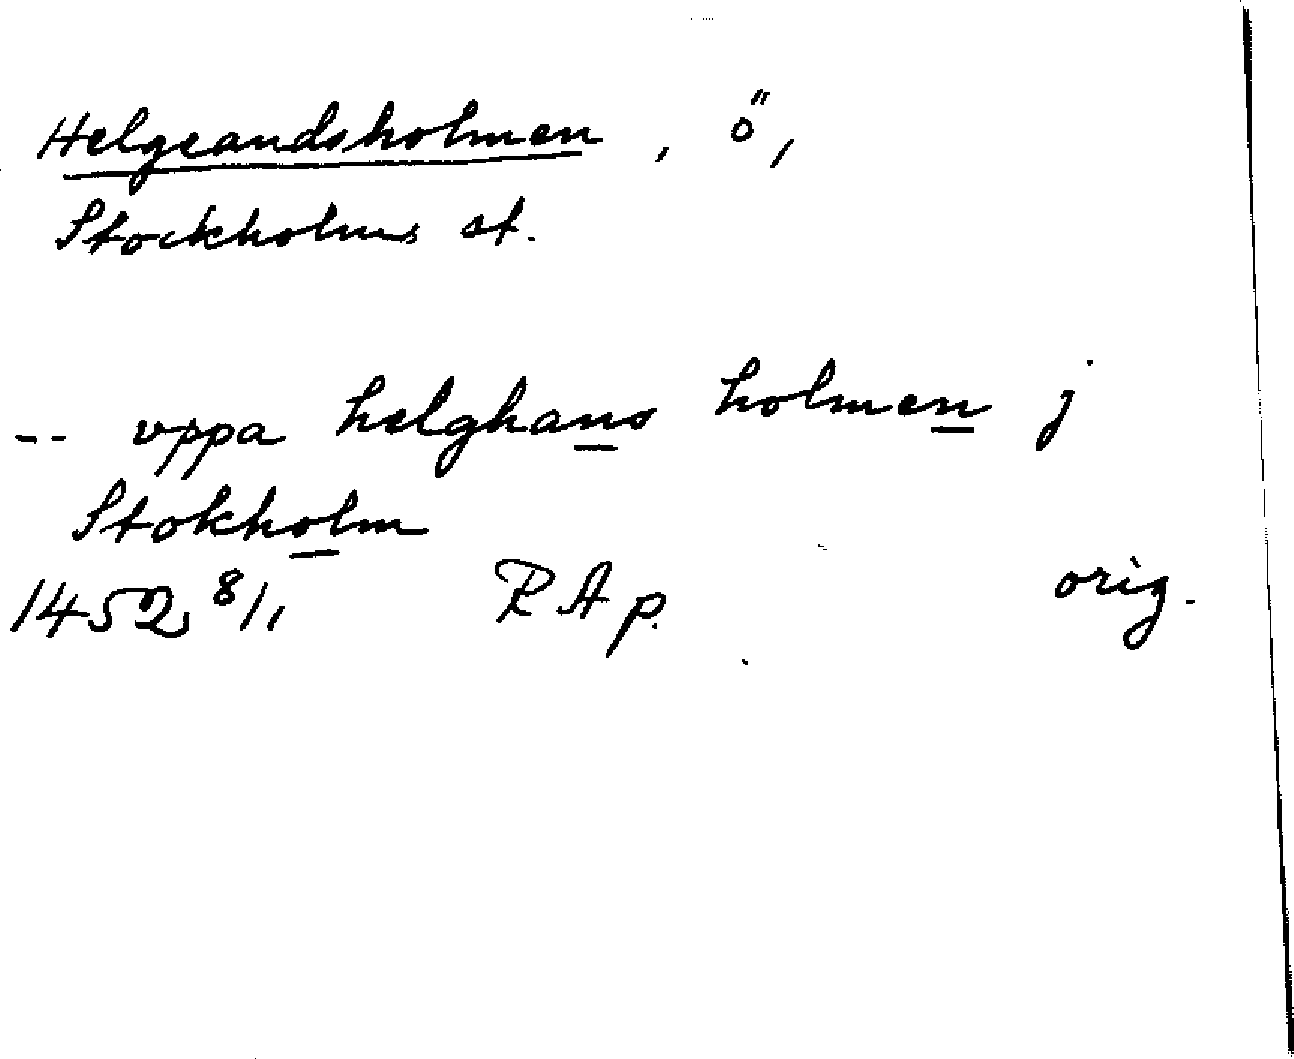 Helgeandsholmen, ö,
Stockholms st.
-- vppa helghans holmen j
Stokholm
1452 8/1 RAp. orig.